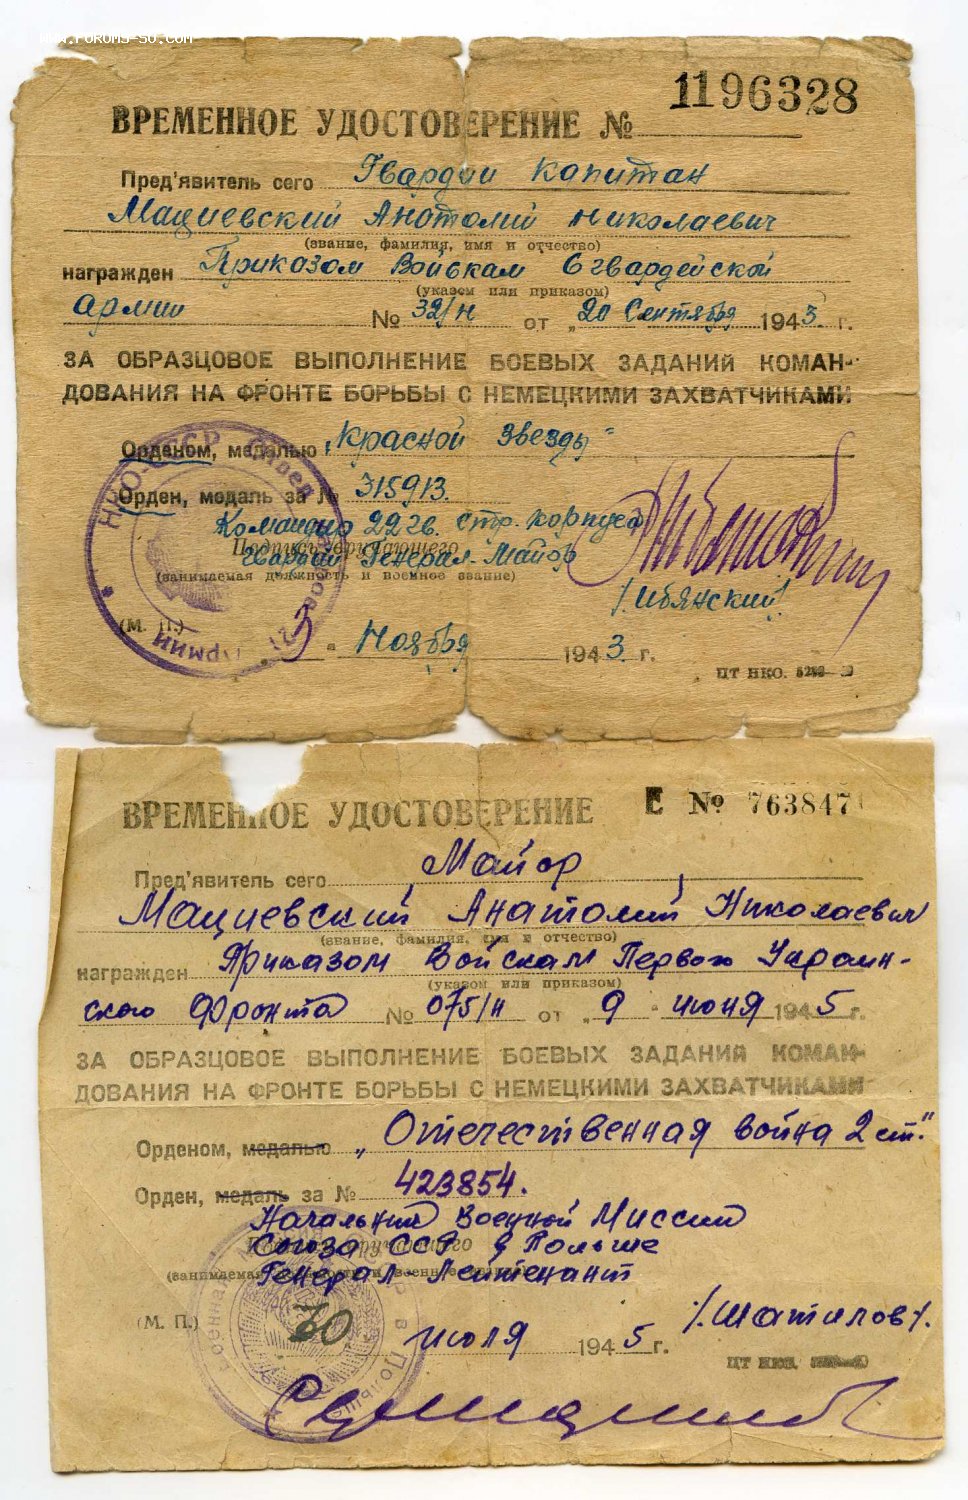 WWW.FORUMS-SU.COM
1196328
ВРЕМЕННОЕ УДОСТОВЕРЕНИЕ №
Пред'явитель сего Гвардии капитан
Мациевский Анатолий Николаевич
(звание, фамилия, имя и отчество)
награжден Приказом Войскам 6 гвардейской
(указом или приказом)
армии № 32/н от „20 Сентября 1943 г.
ЗА ОБРАЗЦОВОЕ ВЫПОЛНЕНИЕ БОЕВЫХ ЗАДАНИЙ КОМАН-
ДОВАНИЯ НА ФРОНТЕ БОРЬБЫ С НЕМЕЦКИМИ ЗАХВАТЧИКАМИ
Орденом, медалью „Красной Звезды"
Орден, медаль за № 315913.
Командир 22 гв. стр. корпуса
Подпись вручающего
Гвардии Генерал-Майор
(занимаемая должность и военное звание)
/Ибянский/
(М. П.)
3 " Ноября 1943 г.
ЦТ НКО.
ВРЕМЕННОЕ УДОСТОВЕРЕНИЕ Е № 763847
Пред'явитель сего Майор
Мациевский Анатолий Николаевич
(звание, фамилия, имя и отчество)
награжден Приказом Войскам Первого Украин-
(указом или приказом)
ского Фронта № 075/н от „9 " июня 1945 г.
ЗА ОБРАЗЦОВОЕ ВЫПОЛНЕНИЕ БОЕВЫХ ЗАДАНИЙ КОМАН-
ДОВАНИЯ НА ФРОНТЕ БОРЬБЫ С НЕМЕЦКИМИ ЗАХВАТЧИКАМИ
Орденом, медалью „Отечественная война 2 ст."
Орден, медаль за № 423854.
Начальник Военной Миссии
Подпись вручающего
Союза ССР в Польше
(занимаемая должность и военное звание)
Генерал-Лейтенант
/Шатилов/.
(М. П.)
30 июля 1945 г.
ЦТ НКО.